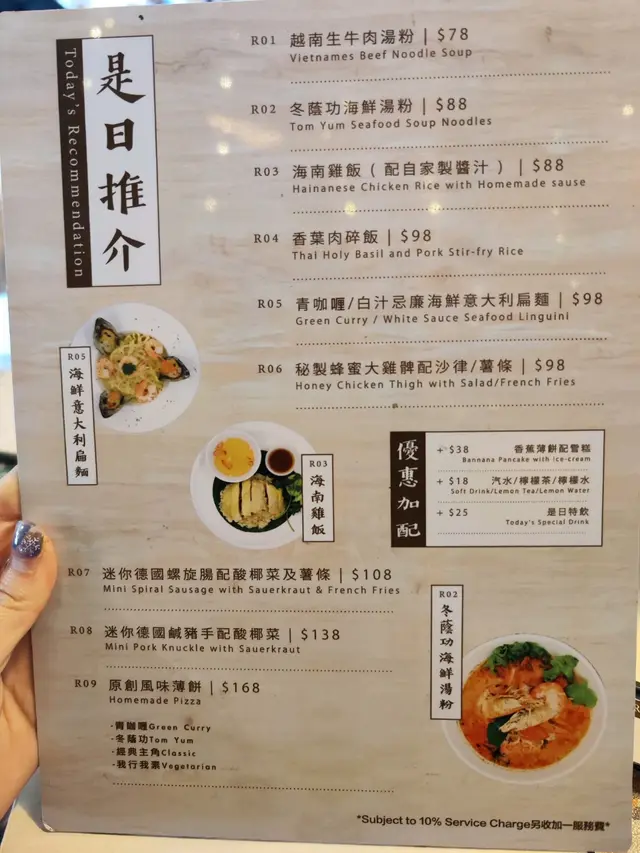 是日推介
Today's Recommendation
R01 越南生牛肉湯粉 | $78
Vietnames Beef Noodle Soup
R02 冬蔭功海鮮湯粉 | $88
Tom Yum Seafood Soup Noodles
R03 海南雞飯 ( 配自家製醬汁 ) | $88
Hainanese Chicken Rice with Homemade sause
R04 香葉肉碎飯 | $98
Thai Holy Basil and Pork Stir-fry Rice
R05 青咖喱/白汁忌廉海鮮意大利扁麵 | $98
Green Curry / White Sauce Seafood Linguini
R06 秘製蜂蜜大雞髀配沙律/薯條 | $98
Honey Chicken Thigh with Salad/French Fries
R05
海鮮意大利扁麵
R03
海南雞飯
優惠加配
+ $38 香蕉薄餅配雪糕
Bannana Pancake with ice-cream
+ $18 汽水/檸檬茶/檸檬水
Soft Drink/Lemon Tea/Lemon Water
+ $25 是日特飲
Today's Special Drink
R07 迷你德國螺旋腸配酸椰菜及薯條 | $108
Mini Spiral Sausage with Sauerkraut & French Fries
R08 迷你德國鹹豬手配酸椰菜 | $138
Mini Pork Knuckle with Sauerkraut
R09 原創風味薄餅 | $168
Homemade Pizza
-青咖喱Green Curry
-冬蔭功Tom Yum
-經典主角Classic
-我行我素Vegetarian
R02
冬蔭功海鮮湯粉
*Subject to 10% Service Charge另收加一服務費*